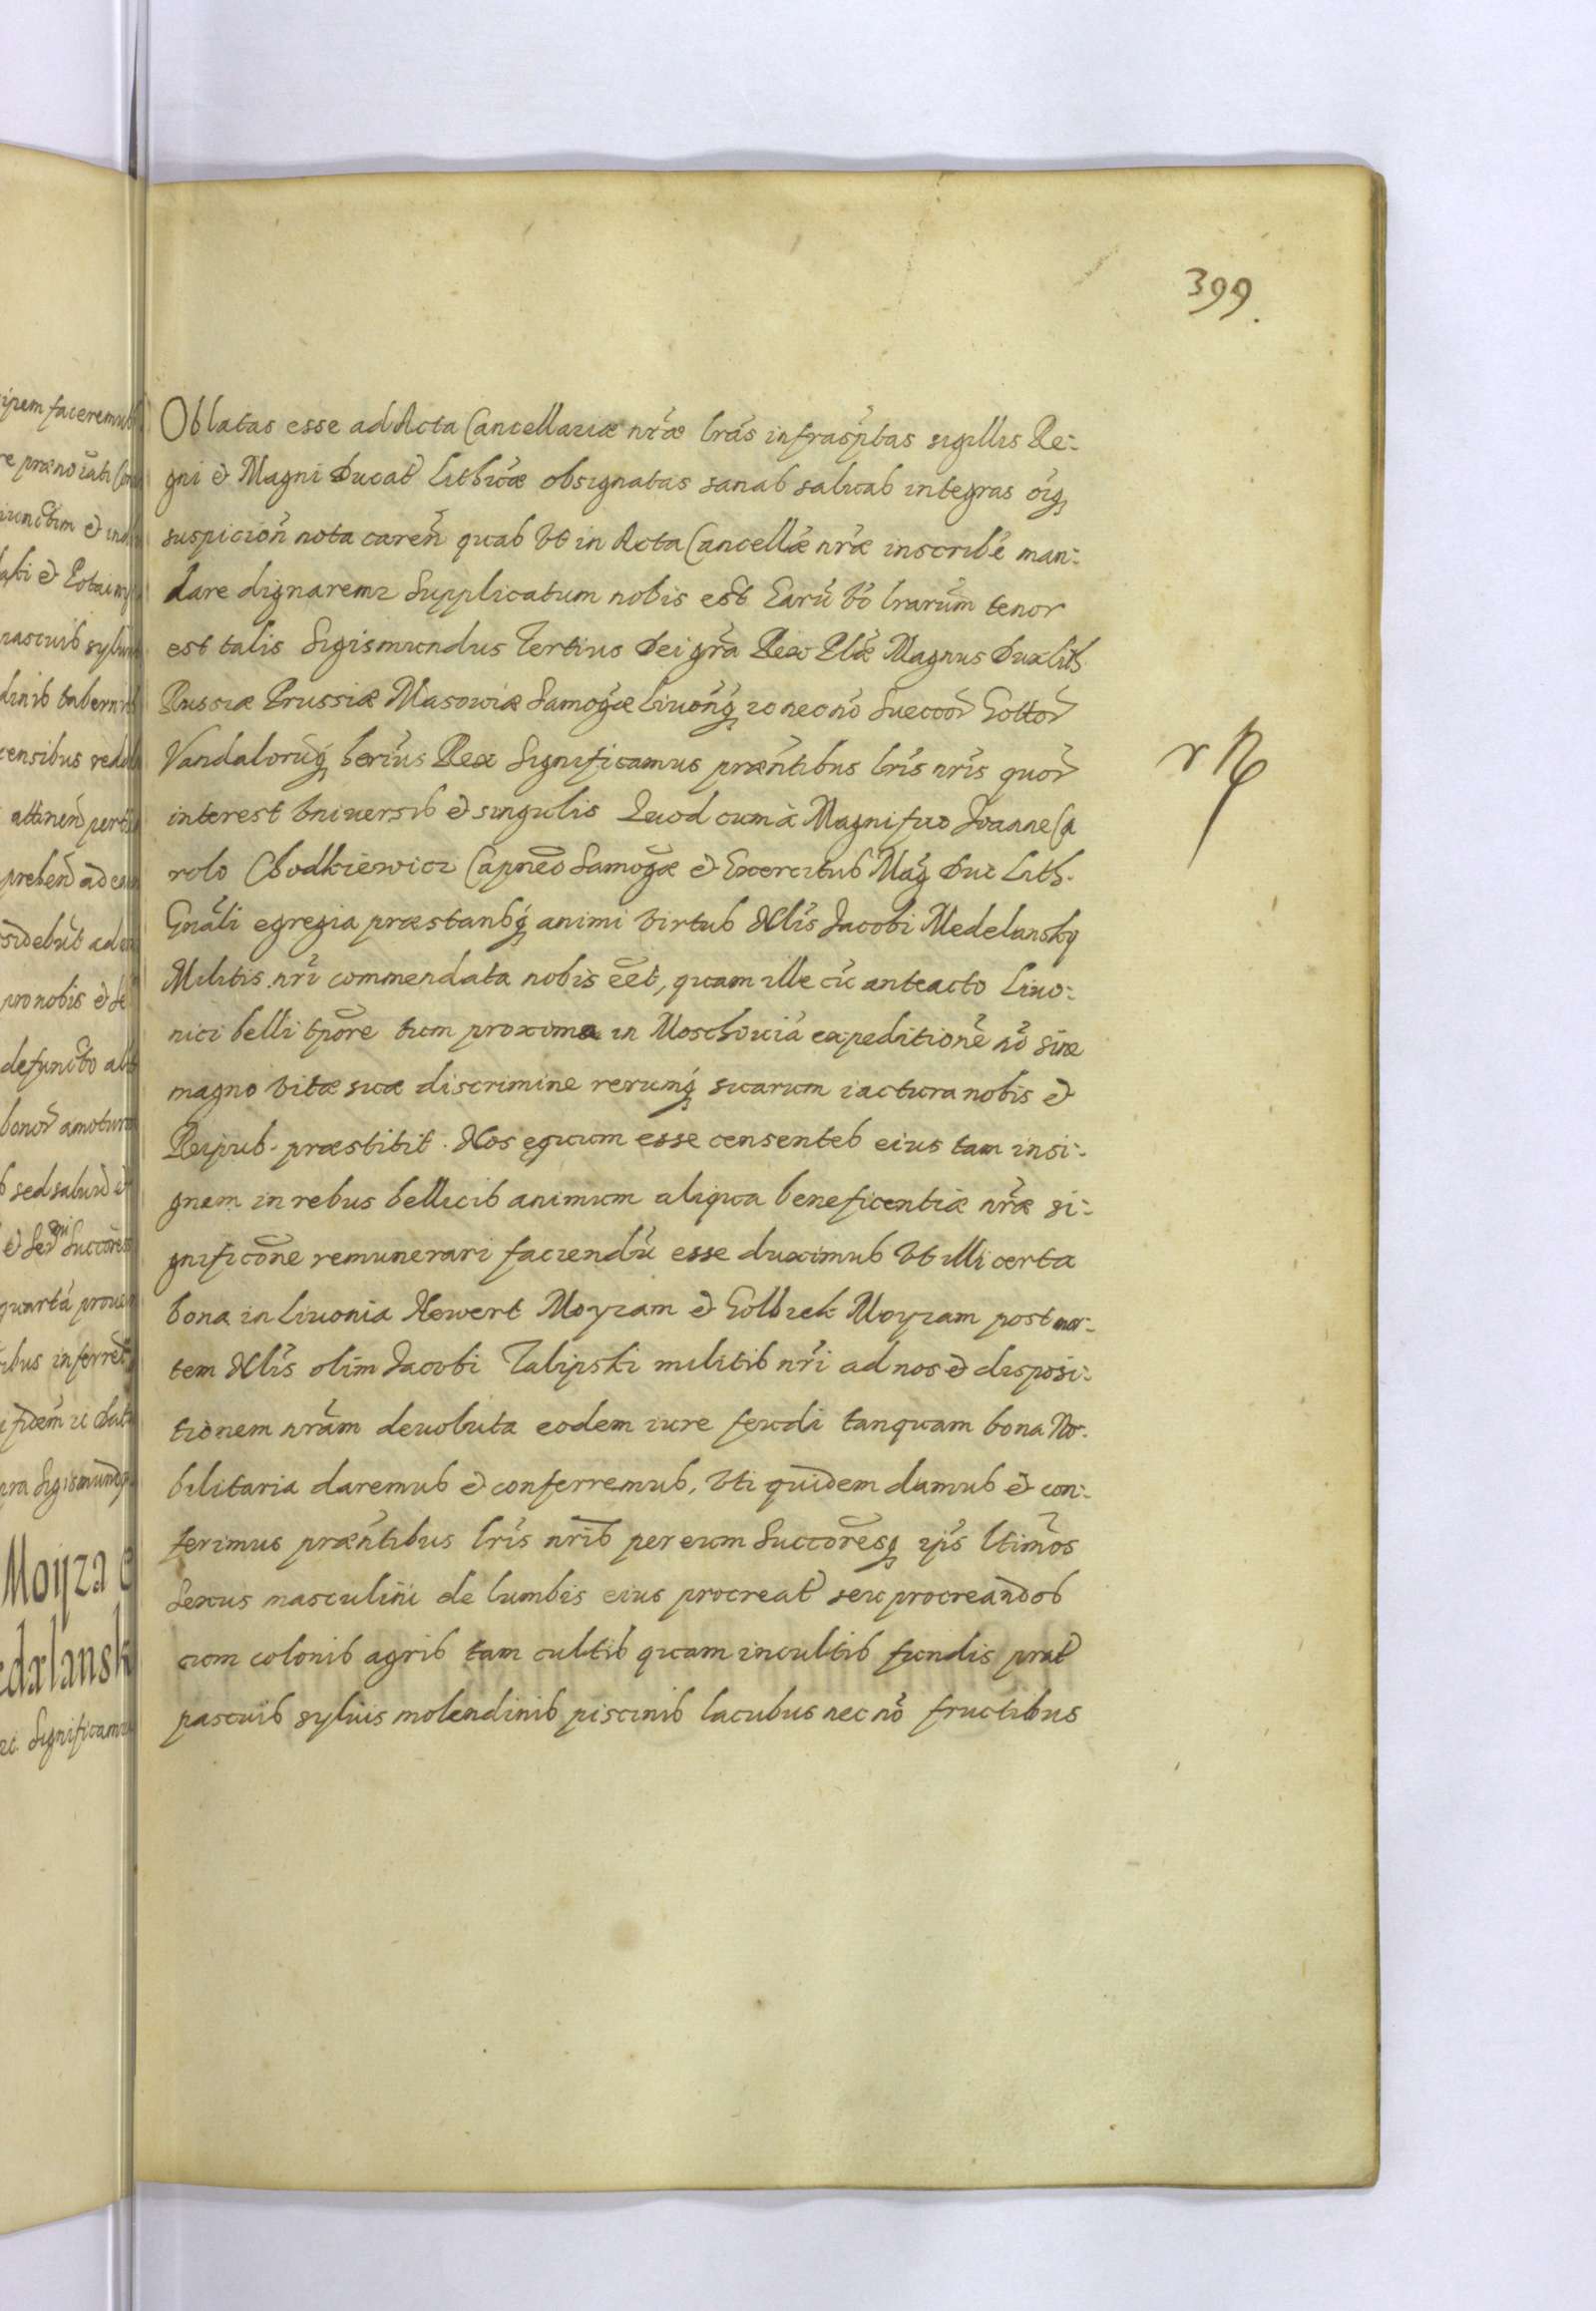 399.
Oblatas esse ad Acta Cancellariæ nr̃æ lr̃as infrasp̃tas sigillis Re:
gni & Magni Ducat Lithũæ obsignatas sanas saluas integras oĩq
suspicioñ nota careñ quas Vt in Acta Cancellæ nr̃æ inscribẽ man:
dare dignaremr Supplicatum nobis est Earũ Vo lrarũm tenor
est talis Sigismundus Tertius Dei gr̃a Rex Pl̃æ Magnus Dux Lith
Russiæ Prussiæ Masowiæ Samog̃æ Liuoñq́ꝫ ꝛc nec nõ Suecor̃ Gottor̃
Vandalorũq́ꝫ her̃ius Rex Significamus præñtibus lr̃is nr̃is quor̃
interest Vniuersis & singulis Quod cum à Magnifico Joanne Ca
rolo Chodkiewicz Capneo Samog̃æ & Exercitus Mag̃ Duc Lith.
Gnãli egregia præstansq́ꝫ animi Virtus Nl̃is Jacobi Medelansky
Militis nr̃i commendata nobis eẽt, quam ille cũ anteacto Liuo:
nici belli tp̃ore tum proxima in Moschouiã expeditionẽ nõ sine
magno Vitæ suæ discrimine rerumq́ꝫ suarum iactura nobis &
Reipub. præstitit. Nos ęquum esse censentes eius tam insi:
gnem in rebus bellicis animum aliqua beneficentiæ nr̃æ si:
gnificõne remunerari faciendũ esse duximus Vt illi certa
bona in Liuonia Newert Moyzam & Golbrek Moyzam post mor:
tem Nl̃is olim Jacobi Talipski militis nr̃i ad nos & disposi:
tionem nr̃am deuoluta eodem iure feudi tanquam bona No.
bilitaria daremus & conferremus, Vti quidem damus & con:
ferimus præñtibus lr̃is nr̃is per eum Succõresq ip̃s ltim̃os
Sexus masculini de lumbis eius procreat seu procreandos
cum colonis agris tam cultis quam incultis fundis prat
pascuis syluis molendinis piscinis lacubus nec nõ fructibus